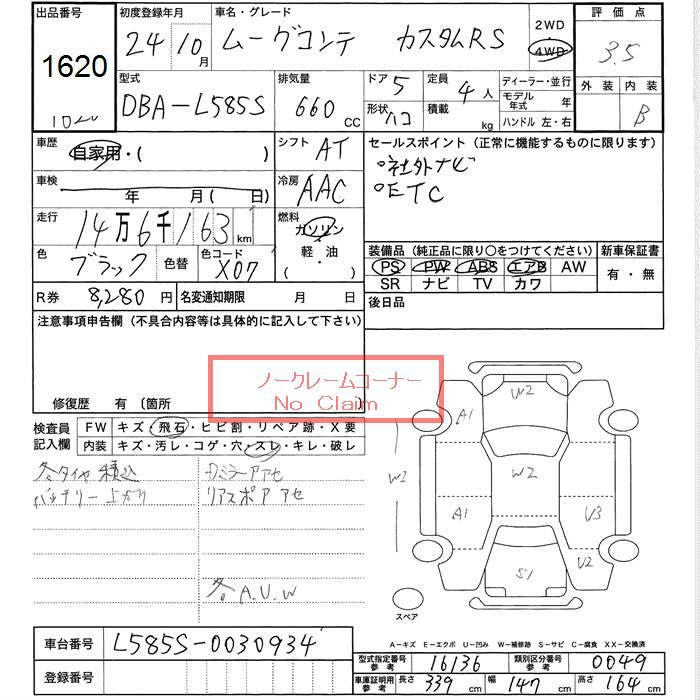 出品番号
1620
初度登録年月
24 10月
車名・グレード
ムーヴコンテ カスタムRS
2WD
4WD
評価点
3.5
外装 内装
B
型式
DBA-L585S
排気量
660 CC
ドア 5
形状 ハコ
定員 4人
積載 kg
ディーラー・並行
モデル年式 年
ハンドル 左・右
車歴
自家用・( )
シフト AT
セールスポイント (正常に機能するものに限ります)
社外ナビ
ETC
車検
年 月( 日)
冷房 AAC
走行
14万6千163km
燃料
ガソリン
軽・油
( )
色
ブラック
色替
色コード
X07
装備品 (純正品に限り○をつけてください)
PS PW ABS エアB AW
SR ナビ TV カワ
新車保証書
有・無
R券 8,280円
名変通知期限 月 日
後日品
注意事項申告欄 (不具合内容等は具体的に記入して下さい)
修復歴 有 〔箇所
ノークレームコーナー
No Claim
検査員記入欄
FW キズ・飛石・ヒビ割・リペア跡・X要
内装 キズ・汚レ・コゲ・穴・スレ・キレ・破レ
冬タイヤ積込
バッテリー上がり
リアスポアアセ
各A.U.W
A1
W2
W1
W2
A1
U3
U2
S1
スペア
A-キズ E-エクボ U-凹み W-補修跡 S-サビ C-腐食 XX-交換済
車台番号 L585S-0030934
登録番号
型式指定番号 参考 16136
類別区分番号 参考 0049
車庫証明用 参考
長さ 339 cm
幅 147 cm
高さ 164 cm